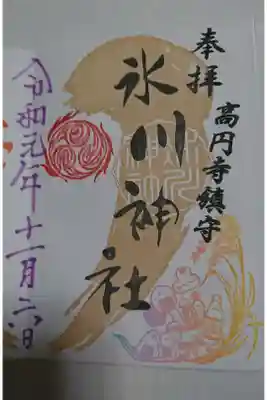 奉拝
高円寺鎮守
氷川神社
令和元年十一月六日